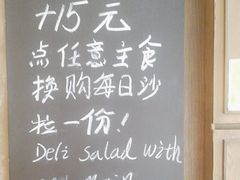 +15元
点任意主食
换购每日沙
拉一份!
Deli Salad with